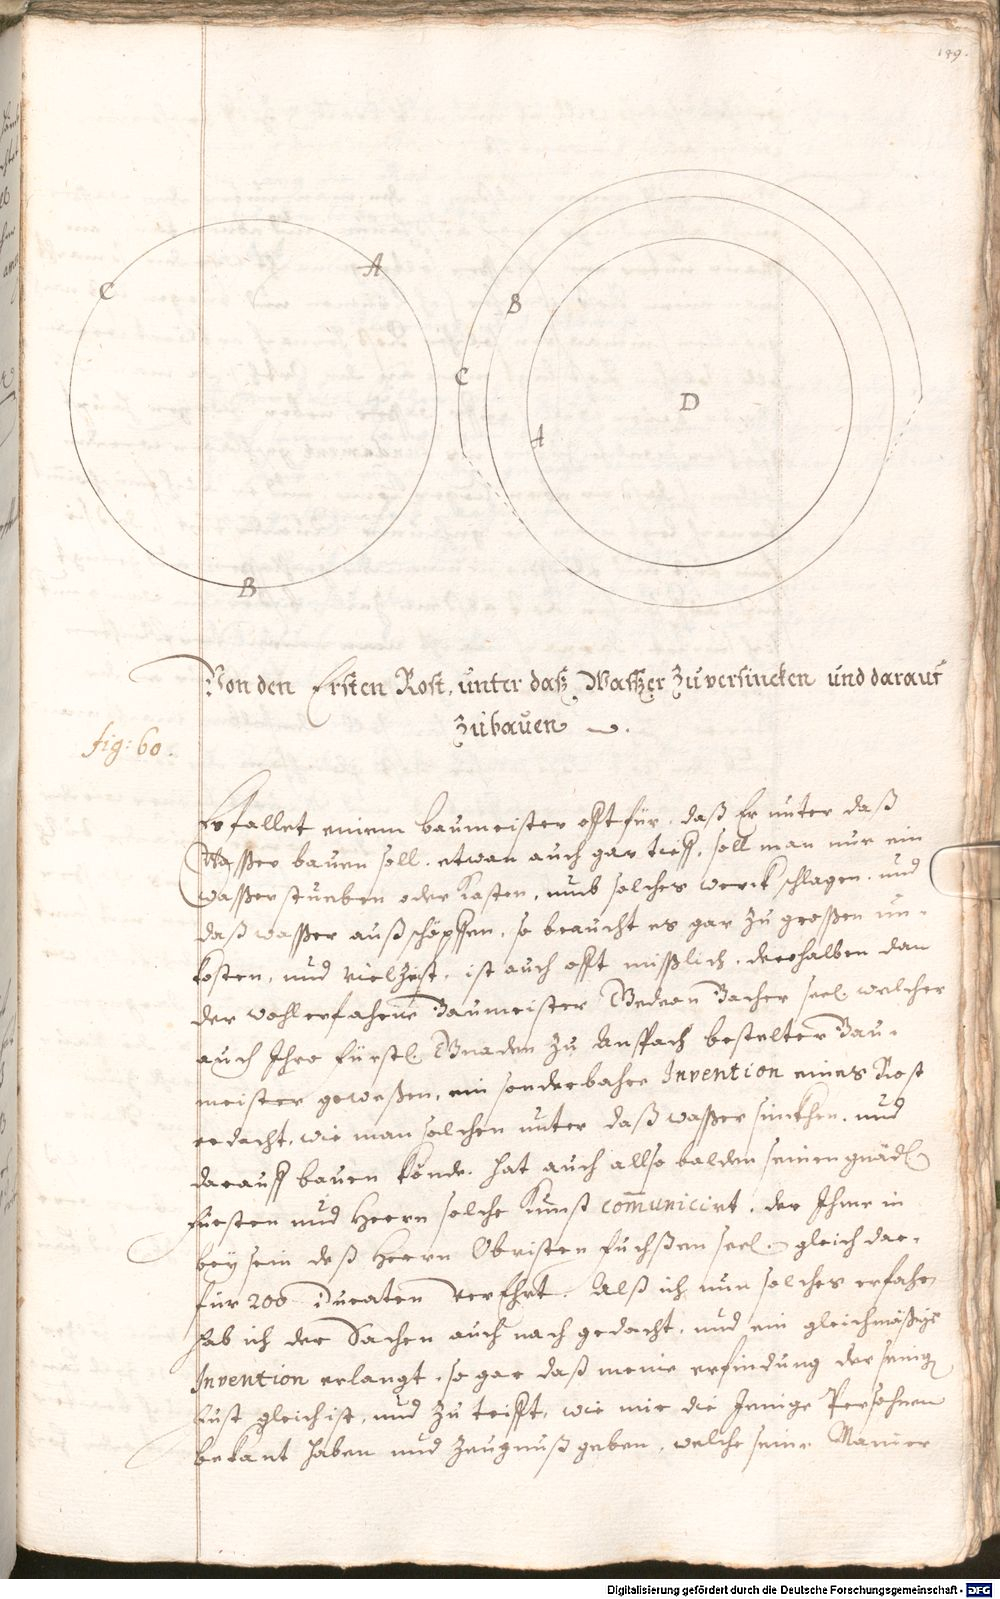 189.
C
A
B
B
C
A
D
Von den Ersten Rost, unter daß Waßer Zuversincken und darauf
Zubauen.
fig: 60.
Es fallet einem baumeister offt für, daß Er unter daß
Wasser bauen soll, etwan auch gar tieff, soll man nur ein
wasserstuben oder Kasten, umb solches werck schlagen, und
daß wasser außschöpffen, so braucht es gar zu grossen un-
kosten, und viel Zeit, ist auch offt mißlich, derohalben dan
der wohlerfahrne Baumeister Gedeon Bacher seel. welcher
auch Ihro fürstl. Gnaden zu Anspach bestelter Bau-
meister geweßen, ein sonderbahre Invention eines Rost
erdacht, wie man solchen unter daß wasser sinckhen, und
darauff bauen könde, hat auch allso balden seinen gnädl.
Fürsten und Herrn solche Kunst com̃unicirt, der Ihme in
beysein deß Herrn Obristen Fuchßen seel. gleich dar-
für 200 Ducaten verehrt. Alß ich nun solches erfahrn
hab ich der Sachen auch nach gedacht, und ein gleichmäßige
Invention erlangt, so gar daß meine erfindung der seinig
fust gleich ist, und zu trifft, wie mir die Jenige Persohnen
bekant haben und Zeugnuß geben, welche seine Manier
Digitalisierung gefördert durch die Deutsche Forschungsgemeinschaft - DFG